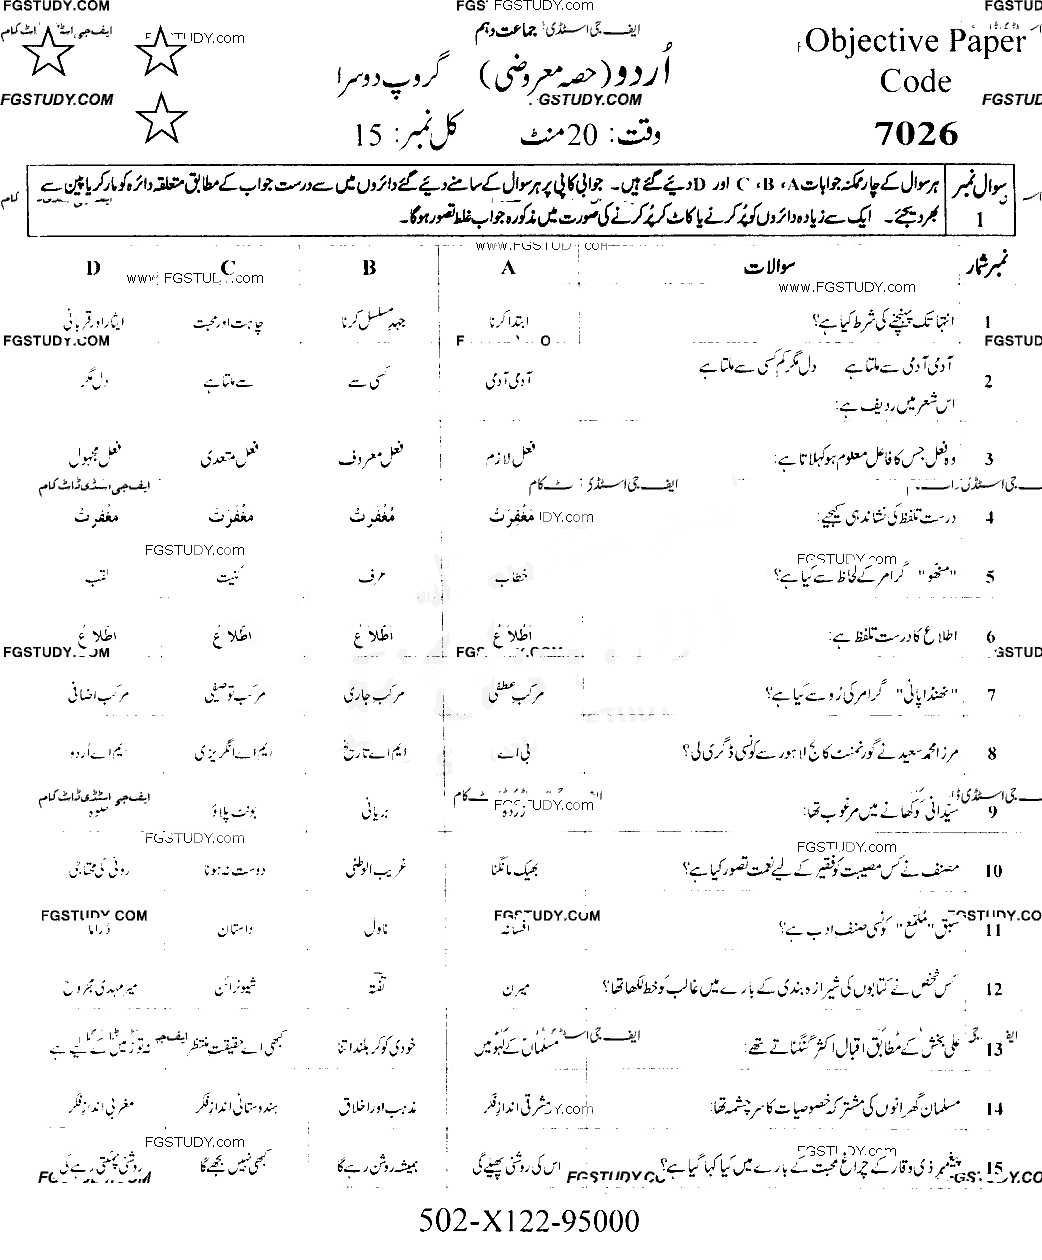 FGSTUDY.COM FGSTUDY.COM FGSTUD
ایف جی اسٹڈی جماعت دہم
FGSTUDY.com
Objective Paper
Code
7026
اُردو (حصہ معروضی) گروپ دوسرا
FGSTUDY.COM GSTUDY.COM FGSTUD
وقت: 20 منٹ کل نمبر: 15
سوال نمبر 1
ہر سوال کے چار ممکنہ جوابات A، B، C اور D دیئے گئے ہیں۔ جوابی کاپی پر ہر سوال کے سامنے دیئے گئے دائروں میں سے درست جواب کے مطابق متعلقہ دائرہ کو مارکر یا پین سے
بھر دیجئے۔ ایک سے زیادہ دائروں کو پُر کرنے یا کاٹ کر پُر کرنے کی صورت میں مذکورہ جواب غلط تصور ہوگا۔
www.FGSTUDY.com
نمبر شمار سوالات A B C D
www.FGSTUDY.com
www.FGSTUDY.com
1 انتہا تک پہنچنے کی شرط کیا ہے؟ ابتدا کرنا جہدِ مسلسل کرنا چاہت اور محبت ایثار اور قربانی
FGSTUDY.COM FGSTUD
2 آدمی آدمی سے ملتا ہے دل مگر کم کسی سے ملتا ہے
اس شعر میں ردیف ہے: آدمی آدمی کسی سے سے ملتا ہے دل مگر
3 وہ فعل جس کا فاعل معلوم ہو کہلاتا ہے: فعل لازم فعل معروف فعل متعدی فعل مجہول
ایف جی اسٹڈی ڈاٹ کام
4 درست تلفظ کی نشاندہی کیجیے: مَغْفِرَتْ مُغْفِرتْ مغْفَرَتْ مغْفرتْ
FGSTUDY.com FGSTUDY.com
5 "منھو" گرامر کے لحاظ سے کیا ہے؟ خطاب عرف کنیت لقب
6 اطلاع کا درست تلفظ ہے:
FGSTUDY.COM FGSTUDY.COM GSTUD
7 "ٹھنڈا پانی" گرامر کی رُو سے کیا ہے؟ مرکب عطفی مرکب جاری مرکب توصیفی مرکب اضافی
8 مرزا محمد سعید نے گورنمنٹ کالج لاہور سے کونسی ڈگری لی؟ بی اے ایم اے تاریخ ایم اے انگریزی ایم اے اُردو
ایف جی اسٹڈی ڈاٹ کام
9 سیدانی کو کھانے میں مرغوب تھا: زردہ بریانی بونٹ پلاؤ
FGSTUDY.com FGSTUDY.com
10 مصنف نے کس مصیبت کو فقیر کے لیے نعمت تصور کیا ہے؟ بھیک مانگنا غریب الوطنی دوست نہ ہونا روٹی کی محتاجی
FGSTUDY.COM FGSTUDY.COM FGSTUDY.CO
11 سبق "ملمع" کونسی صنف ادب ہے؟ افسانہ ناول داستان ڈراما
12 کس شخص نے کتابوں کی شیرازہ بندی کے بارے میں غالب کو خط لکھا تھا؟ میرن تفتہ شیو نرائن میر مہدی مجروح
13 علی بخش کے مطابق اقبال اکثر گنگناتے تھے: مسلماں کے لہو میں خودی کو کر بلند اتنا کبھی اے حقیقتِ منتظر
14 مسلمان گھرانوں کی مشترکہ خصوصیات کا سرچشمہ تھا: مشرقی اندازِ فکر مذہب اور اخلاق ہندوستانی اندازِ فکر مغربی اندازِ فکر
FGSTUDY.com FGSTUDY.com
15 پیغمبرِ ذی وقار کے چراغِ محبت کے بارے میں کیا کہا گیا ہے؟ اس کی روشنی پھیلے گی ہمیشہ روشن رہے گا کبھی نہیں بجھے گا
502-X122-95000